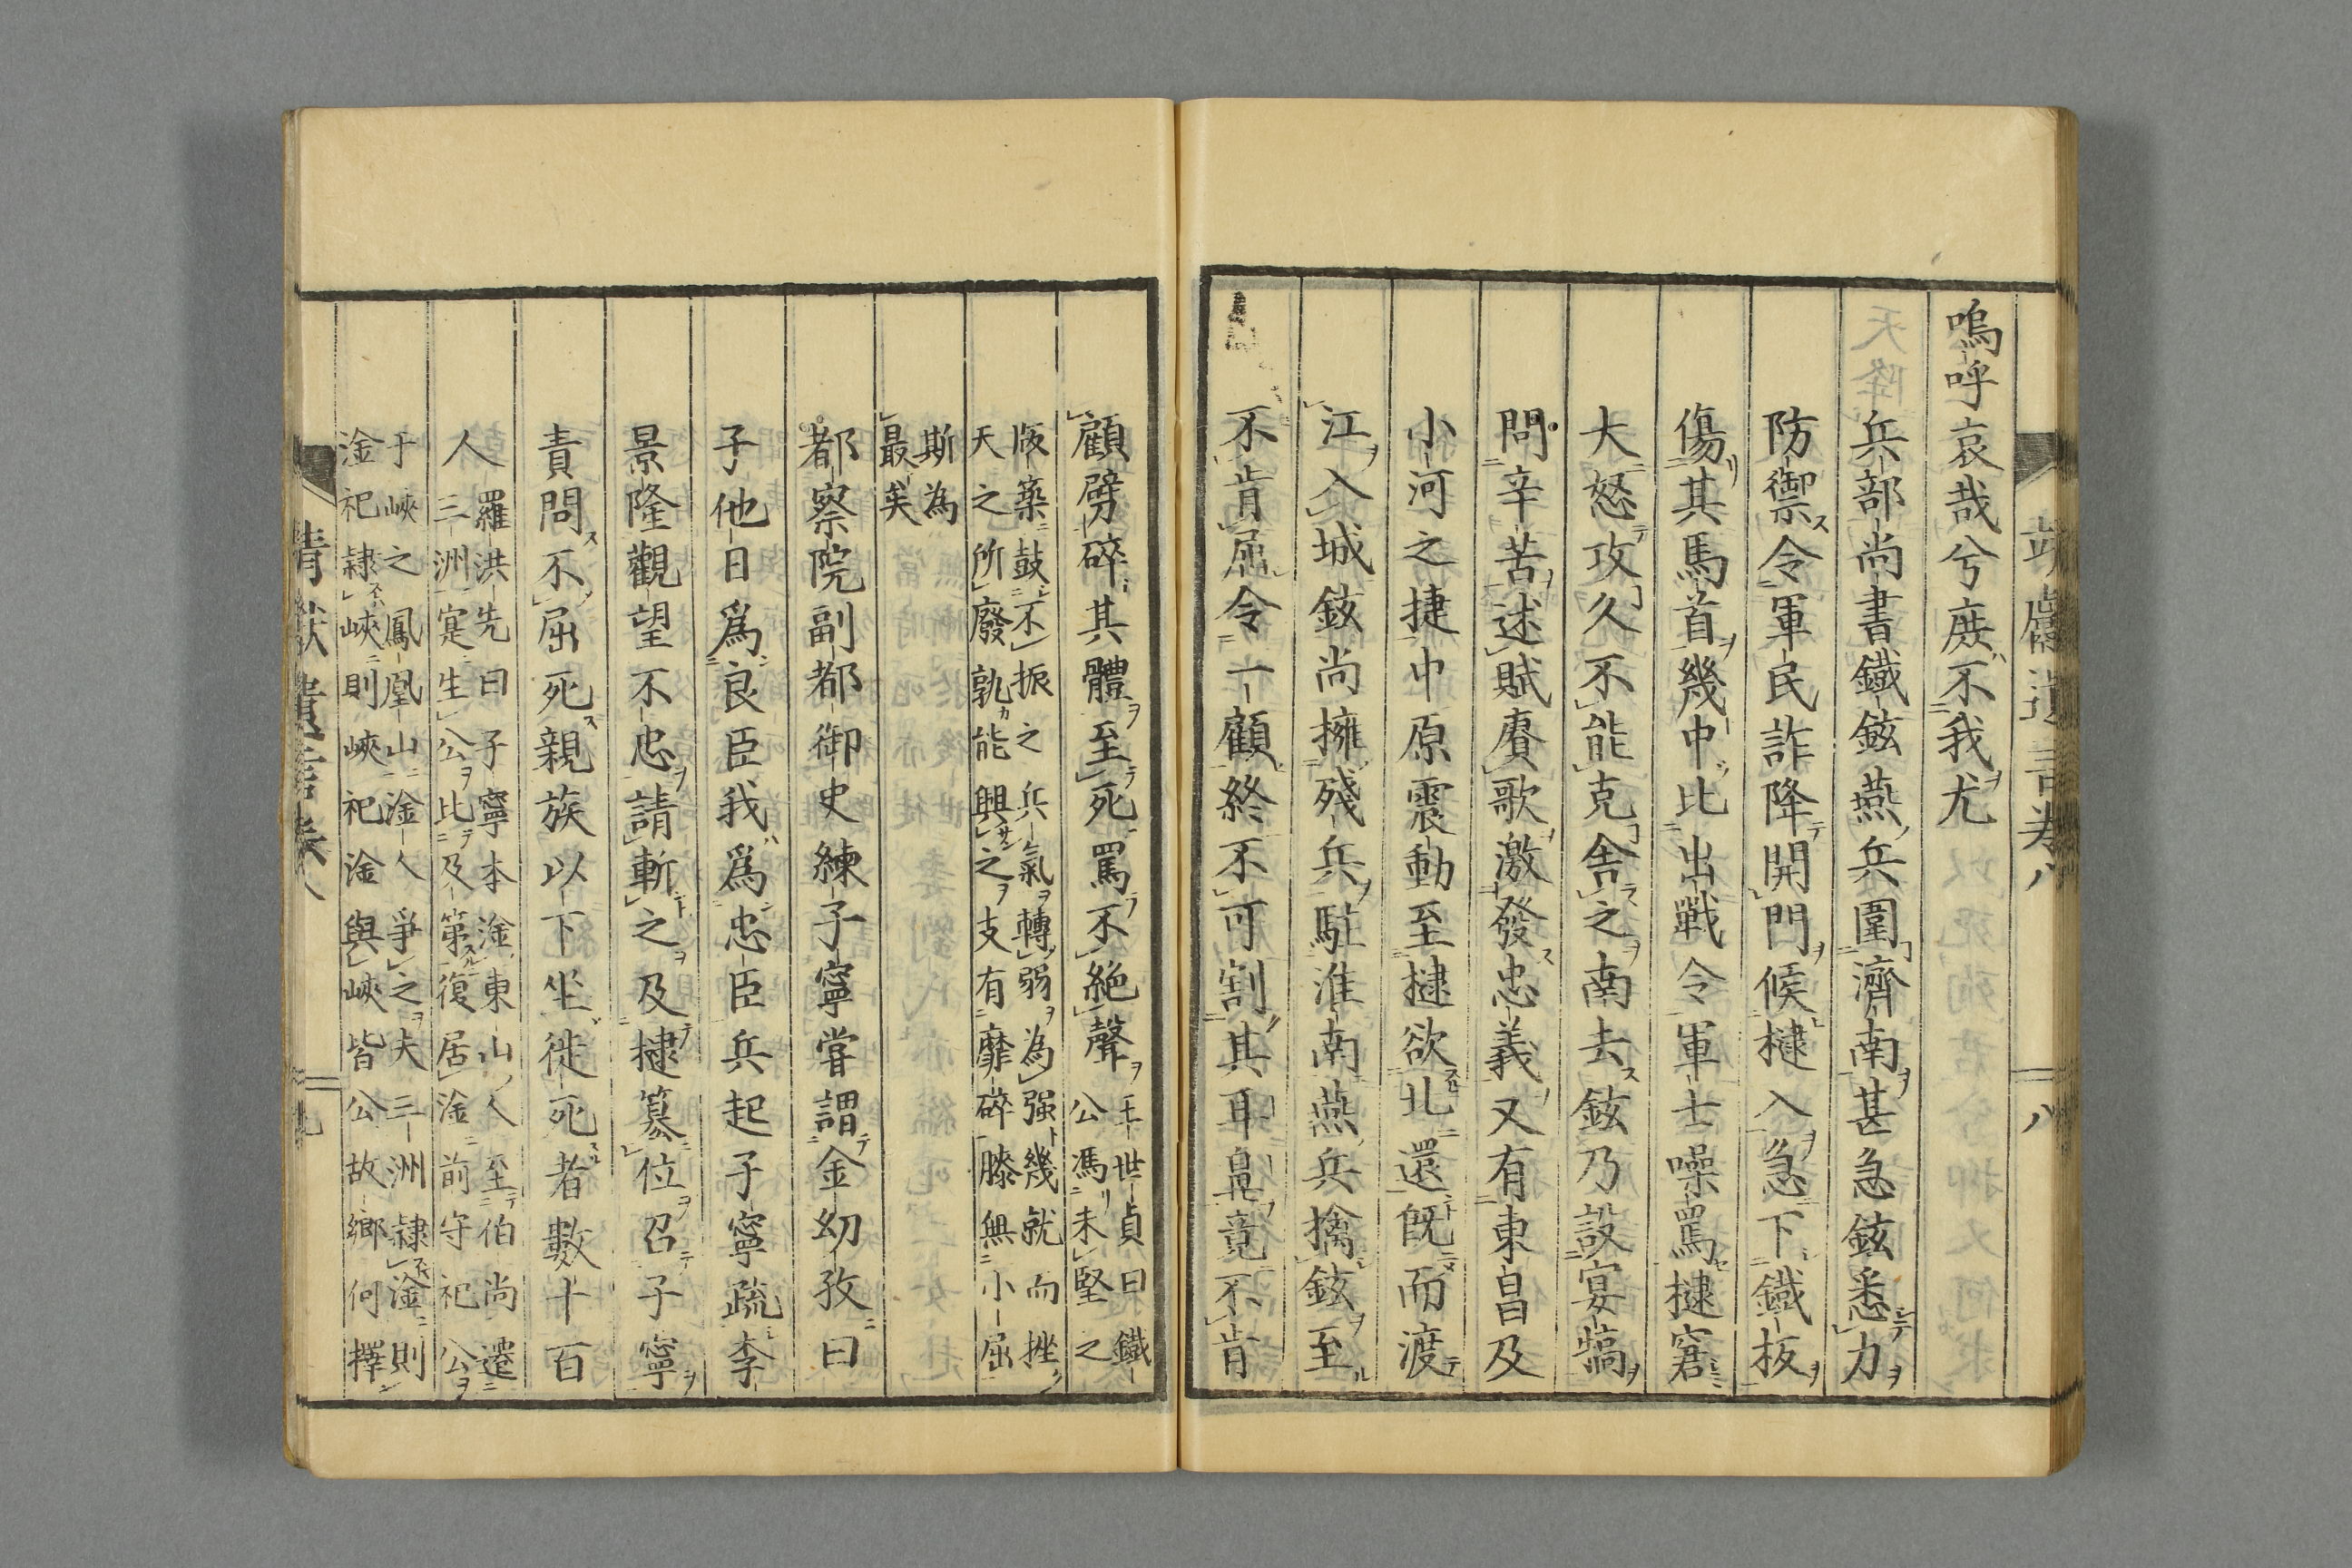 嗚呼哀哉兮庶不我尤
兵部尚書鐵鉉燕兵圍濟南甚急鉉悉力
防御禦令軍民詐降開門候棣入急下鐵板
傷其馬首幾中比出戰令軍士噪罵棣窘
大怒攻久不能克舍之南去鉉乃設宴犒
問辛苦述賦賡歌激發忠義又有東昌及
小河之捷中原震動至棣欲北還既而渡
江入城鉉尚擁殘兵駐淮南燕兵擒鉉至
不肯屈令一顧終不可割其耳鼻竟不肯
顧劈碎其體至死罵不絕聲
王世貞曰鐵
公馮未堅之
版築鼓不振之兵氣轉弱為强幾就而挫
天之所廢孰能興之支有靡碎膝無小屈
斯為
最矣
都察院副都御史練子寧嘗謂金幼孜曰
子他日爲良臣我爲忠臣兵起子寧疏李
景隆觀望不忠請斬之及棣篡位召子寧
責問不屈死親族以下坐徙死者數十百
人
羅洪先曰子寧本淦東山人至伯尚遷
三洲寔生公比及第復居淦前守祀公
于峽之鳳凰山淦人爭之夫三洲隷淦則
淦祀隷峽則峽祀淦與峽皆公故鄉何擇